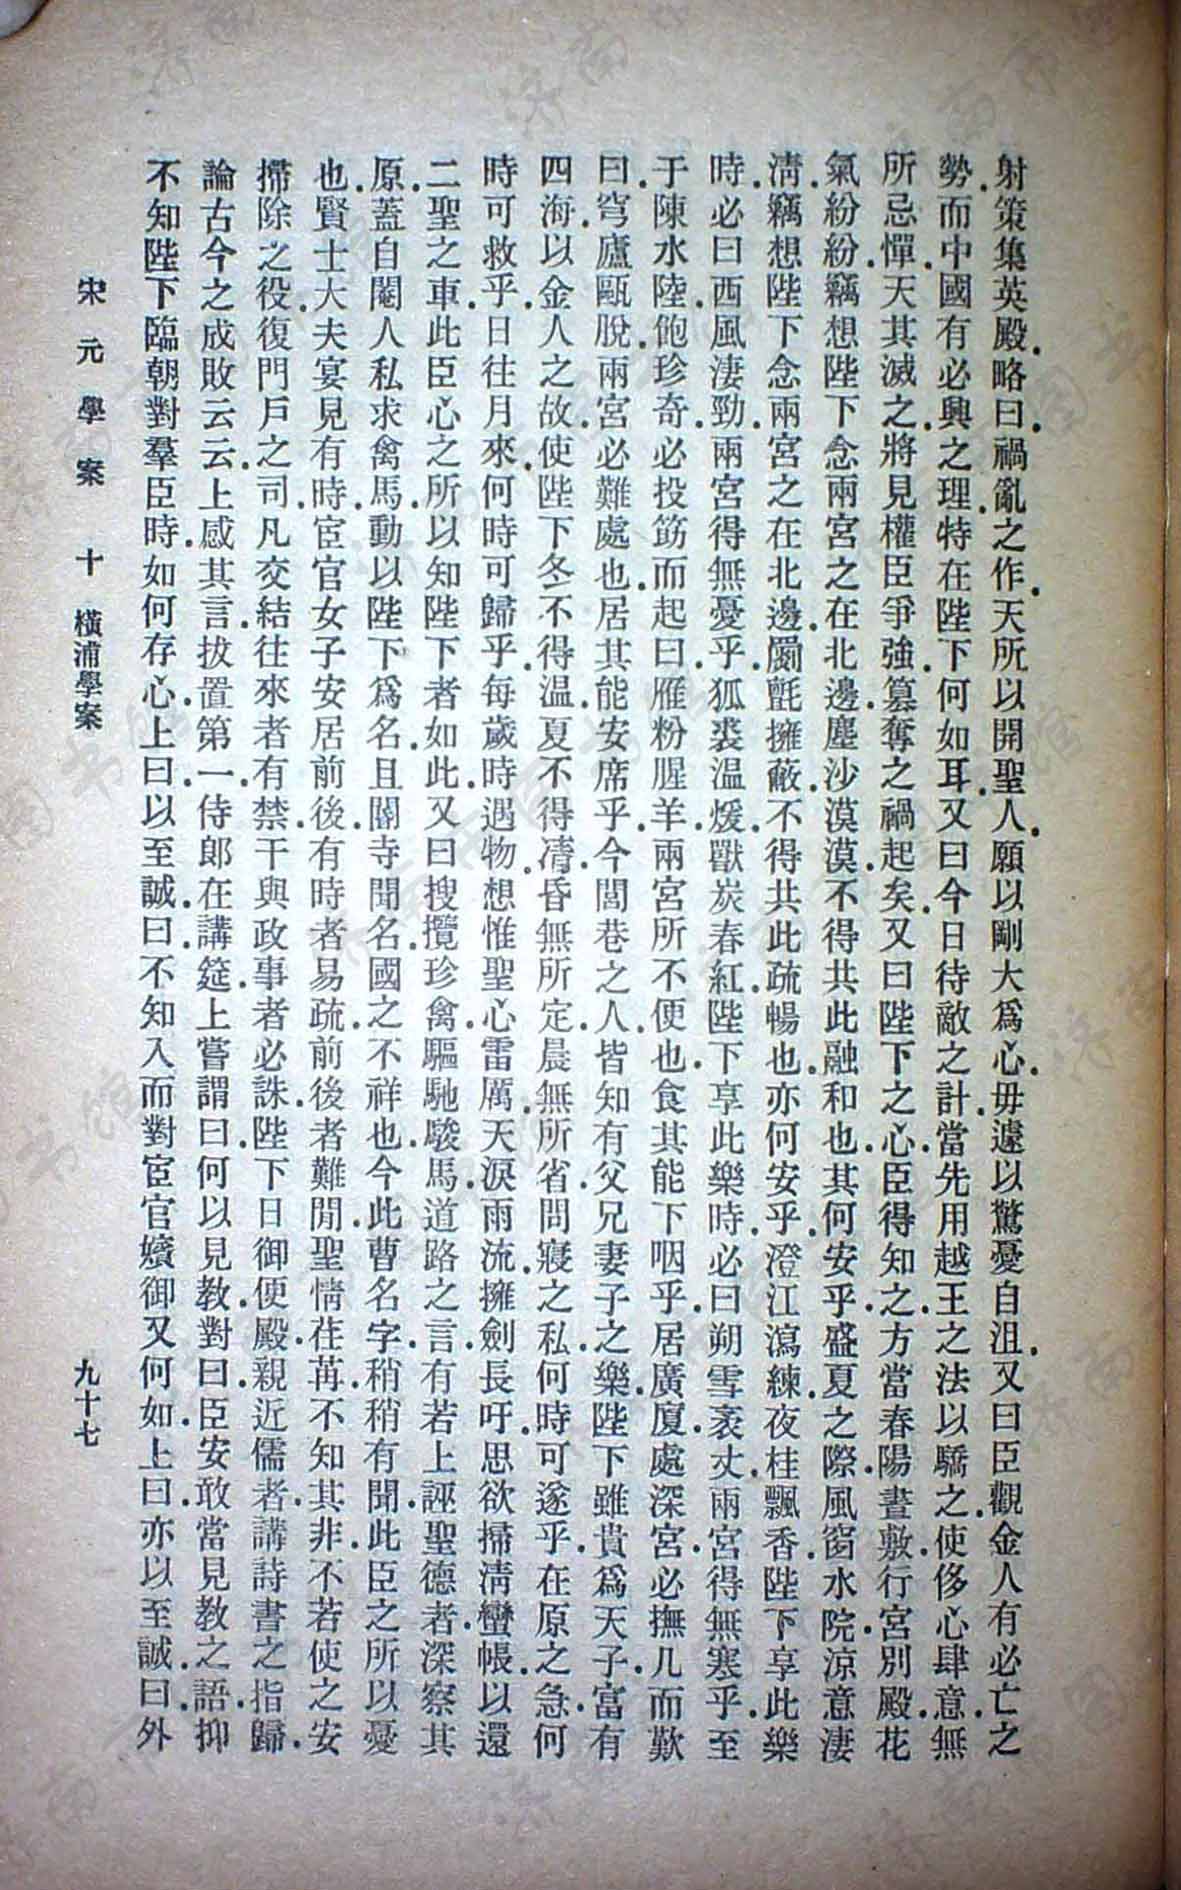 射策集英殿略曰禍亂之作天所以開聖人願以剛大爲心毋遽以驚憂自沮又曰臣觀金人有必亡之
勢而中國有必興之理特在陛下何如耳又曰今日待敵之計當先用越王之法以驕之使侈心肆意無
所忌憚天其滅之將見權臣爭強篡奪之禍起矣又曰陛下之心臣得知之方當春陽晝敷行宮別殿花
氣紛紛竊想陛下念兩宮之在北邊塵沙漠漠不得共此融和也其何安乎盛夏之際風窗水院涼意淒
清竊想陛下念兩宮之在北邊罽氈擁蔽不得共此疏暢也亦何安乎澄江瀉練夜桂飄香陛下享此樂
時必曰西風淒勁兩宮得無憂乎狐裘溫煖獸炭春紅陛下享此樂時必曰朔雪袤丈兩宮得無寒乎至
于陳水陸飽珍奇必投筯而起曰雁粉腥羊兩宮所不便也食其能下咽乎居廣廈處深宮必撫几而歎
曰穹廬甌脫兩宮必難處也居其能安席乎今閭巷之人皆知有父兄妻子之樂陛下雖貴爲天子富有
四海以金人之故使陛下冬不得溫夏不得凊昏無所定晨無所省問寢之私何時可遂乎在原之急何
時可救乎日往月來何時可歸乎每歲時遇物想惟聖心雷厲天淚雨流擁劍長吁思欲掃清蠻帳以還
二聖之車此臣心之所以知陛下者如此又曰搜攬珍禽驅馳駿馬道路之言有若上誣聖德者深察其
原蓋自閹人私求禽馬動以陛下爲名且閽寺聞名國之不祥也今此曹名字稍稍有聞此臣之所以憂
也賢士大夫宴見有時宦官女子安居前後有時者易疏前後者難閒聖情荏苒不知其非不若使之安
掃除之役復門戶之司凡交結往來者有禁干與政事者必誅陛下日御便殿親近儒者講詩書之指歸
論古今之成敗云云上感其言拔置第一侍郎在講筵上嘗謂曰何以見教對曰臣安敢當見教之語抑
不知陛下臨朝對羣臣時如何存心上曰以至誠曰不知入而對宦官嬪御又何如上曰亦以至誠曰外
宋元學案 十 橫浦學案 九十七